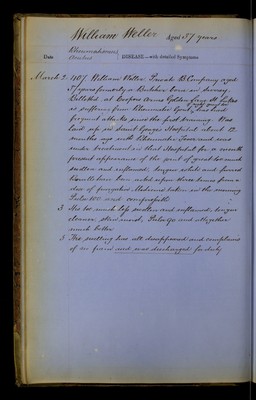 William Weller Aged 37 years
Rheumatismus
Date
DISEASE.—with detailed Symptoms
March 2 1807. William Weller Private B Company aged
37 years formerly a Butcher born in Surrey.
Billeted at Coopers Arms Golden Lane St Lukes
is suffering from Rheumatic Gout, has had
frequent attacks since the first evening. Was
laid up in Saint Georges Hospital about 12
months ago with Rheumatic Fever and was
under treatment in that Hospital for a month
present appearance of the joint of great toe much
swollen and inflamed, tongue white and furred
Bowels have been acted upon three times from a
dose of purgative Medicine taken in the morning
Pulse 100 and compressible
3 His toe much less swollen and inflamed, tongue
cleaner, skin moist, Pulse 90 and altogether
much better
5 The swelling has all disappeared and complains
of no pain and was discharged for duty